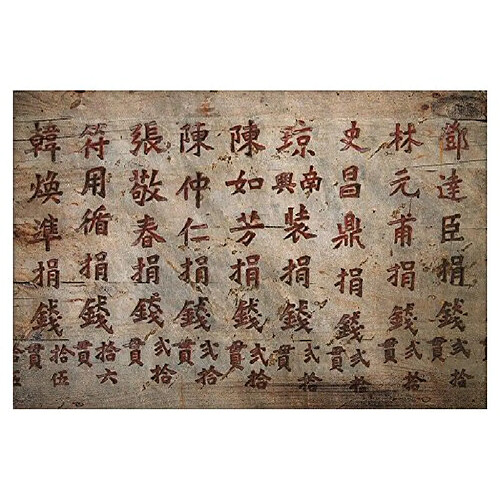 鄧達臣捐錢弍拾貫
林元甫捐錢弍拾貫
史昌鼎捐錢弍拾貫
琼南興裝捐錢弍拾貫
陳如芳捐錢弍拾貫
陳仲仁捐錢弍拾貫
張敬春捐錢弍拾貫
符用循捐錢拾六貫
韓煥準捐錢拾伍貫